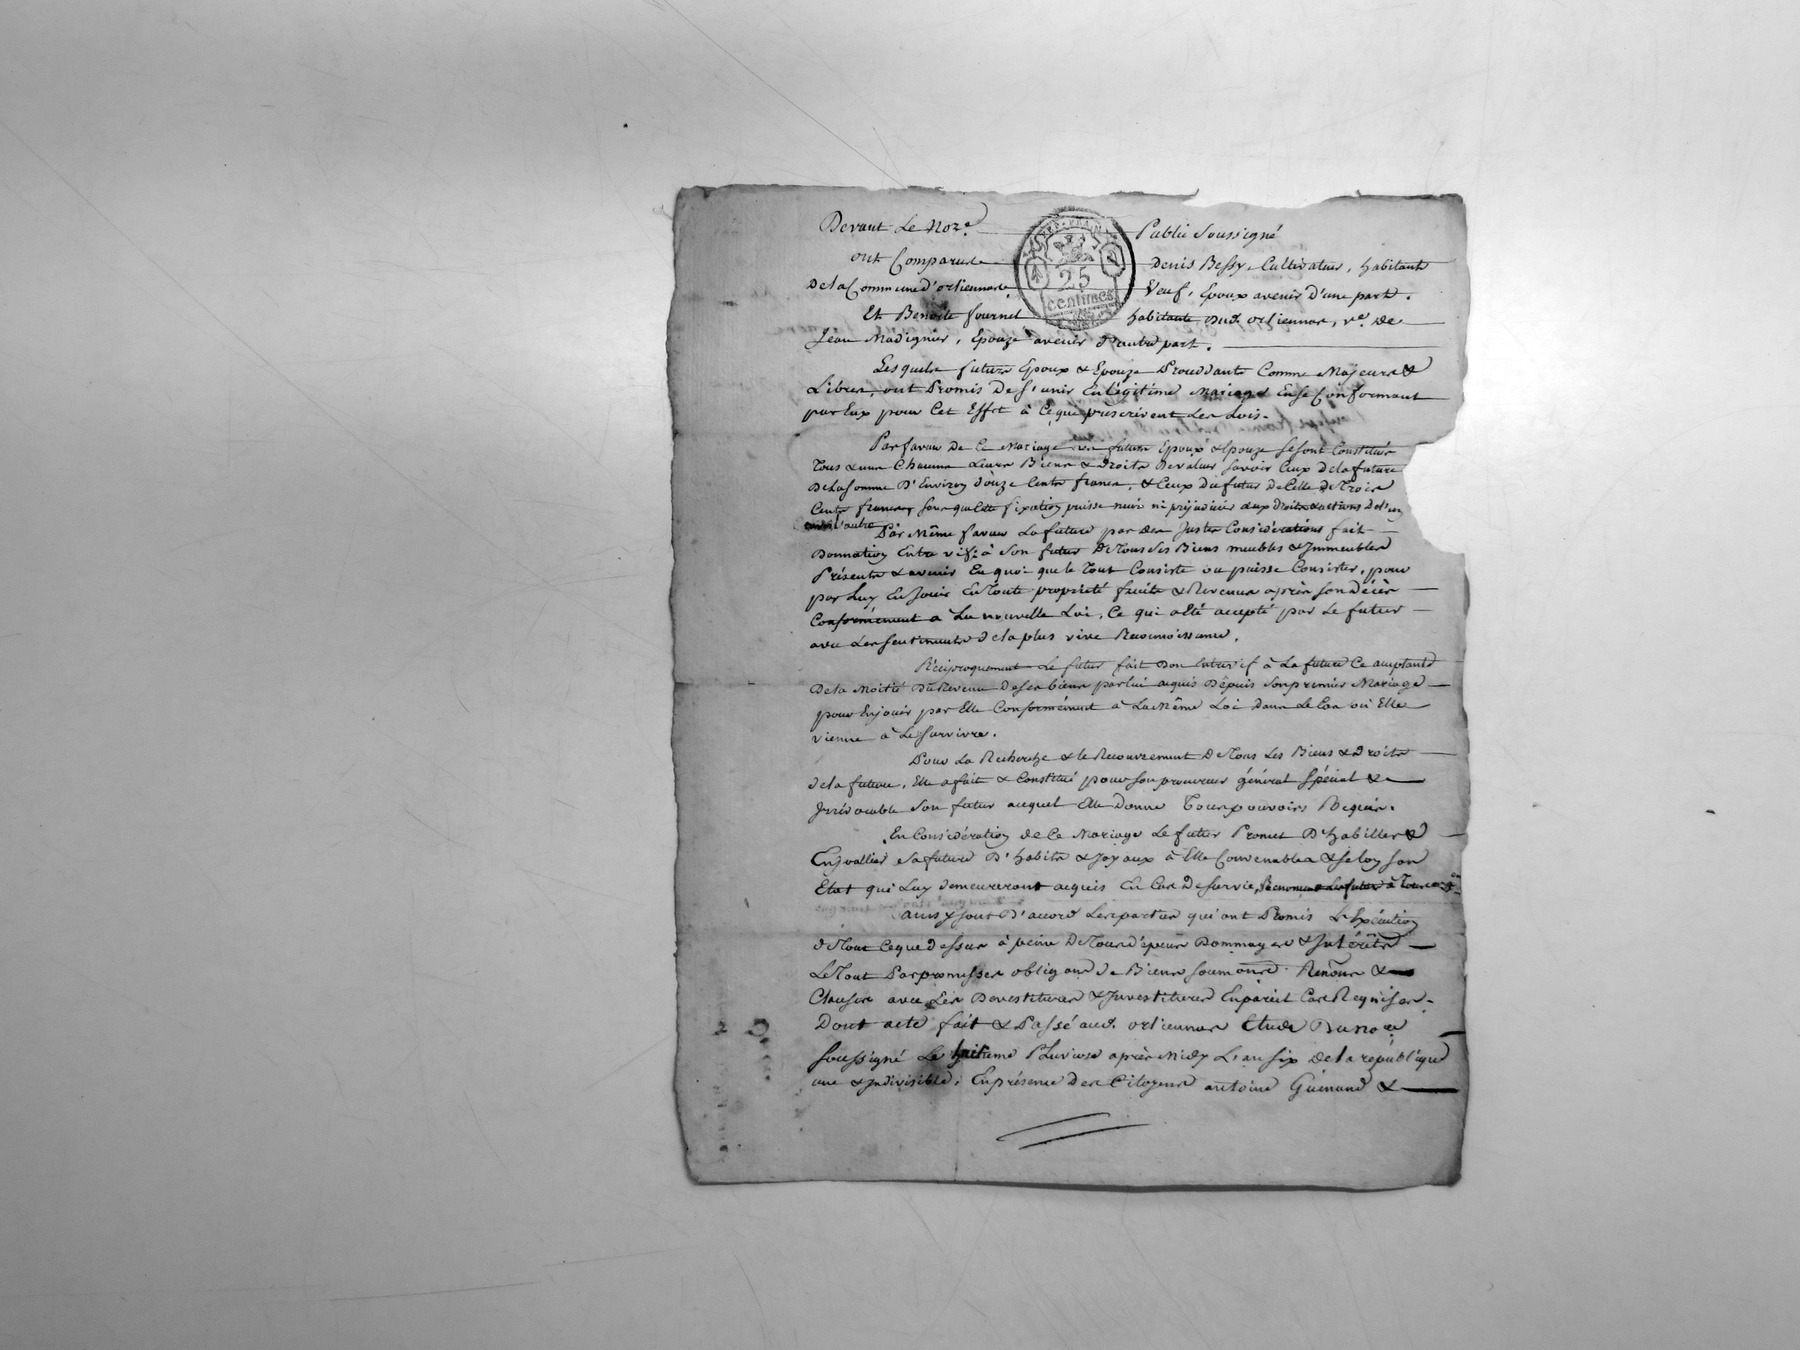 Devant Le Not.e Public Soussigné
ont Comparus Denis Bessy Cultivateur, habitant
De la Commune d'orliennas, Veuf, Epoux avenir d'une part.
Et Benoite fournel habitante dud. orliennas, v.e de
Jean Madignier, Epouze avenir d'autre part.
Lesquels futurs Epoux & Epouze Procedants Comme Majeurs &
Libres, ont Promis De s'unir En légitime Mariage En se Conformant
par Eux pour Cet Effet à Ce que prescrivent Les Lois.
Par faveur De Ce Mariage les futurs Epoux & Epouze se sont Constitués
Tous & uns Chacuns Leurs Biens & Droits De valeur savoir Ceux de la future
De la somme D'Environ douze Cents francs, & Ceux du futur de Celle de Trois
Cents francs, sans que Cette fixation puisse nuir ni préjudicier aux droits & actions de l'un
envers l'autre
Par Même faveur La future par des Justes Considérations fait
Donnation Entre vifs à Son futur De Tous ses Biens meubles & Immeubles
Présents & avenir En quoi que le Tout Consiste ou puisse Consister, pour
par Luy En Jouir En Toute propriété fruits & Revenus après son décès
Conformément à La nouvelle Loi, Ce qui a été accepté par Le futur
avec Les sentiments de la plus vive Reconnoissance.
Réciproquement Le futur fait Don Entrevif à La future Ce acceptant
De la Moitié Du Revenu De ses biens par lui acquis Depuis Son premier Mariage
pour En jouir par Elle Conformément à La Même Loi Dans Le Cas où Elle
vienne à Le survivre.
Pour La Recherche & le Recouvrement De Tous Les Biens & Droits
de la future, Elle a fait & Constitué pour son procureur général spécial &
Irrévocable Son futur auquel Elle Donne Tous pouvoirs Requis.
En Considération de Ce Mariage Le futur Promet D'habiller &
Enjoallier sa future D'habits & Joyaux à Elle Convenables & selon son
Etat qui Luy demeureront acquis En Cas De survie,
ainsy sont D'accord Les parties qui ont Promis L'Exécution
de Tout Ce que dessus à peine De Tous dépens Dommages & Intérêts
Le Tout Par promesses obligaons de Biens soumons. Renons &
Clauses avec Les Devestitures & Investitures En pareil Cas Requises.
Dont acte fait & Passé aud. orliennas Etude Du nore
soussigné Le huitieme Pluviose après Midy L'an six de la république
une & Indivisible, En présence des Citoyens antoine Guinand &
25
centimes